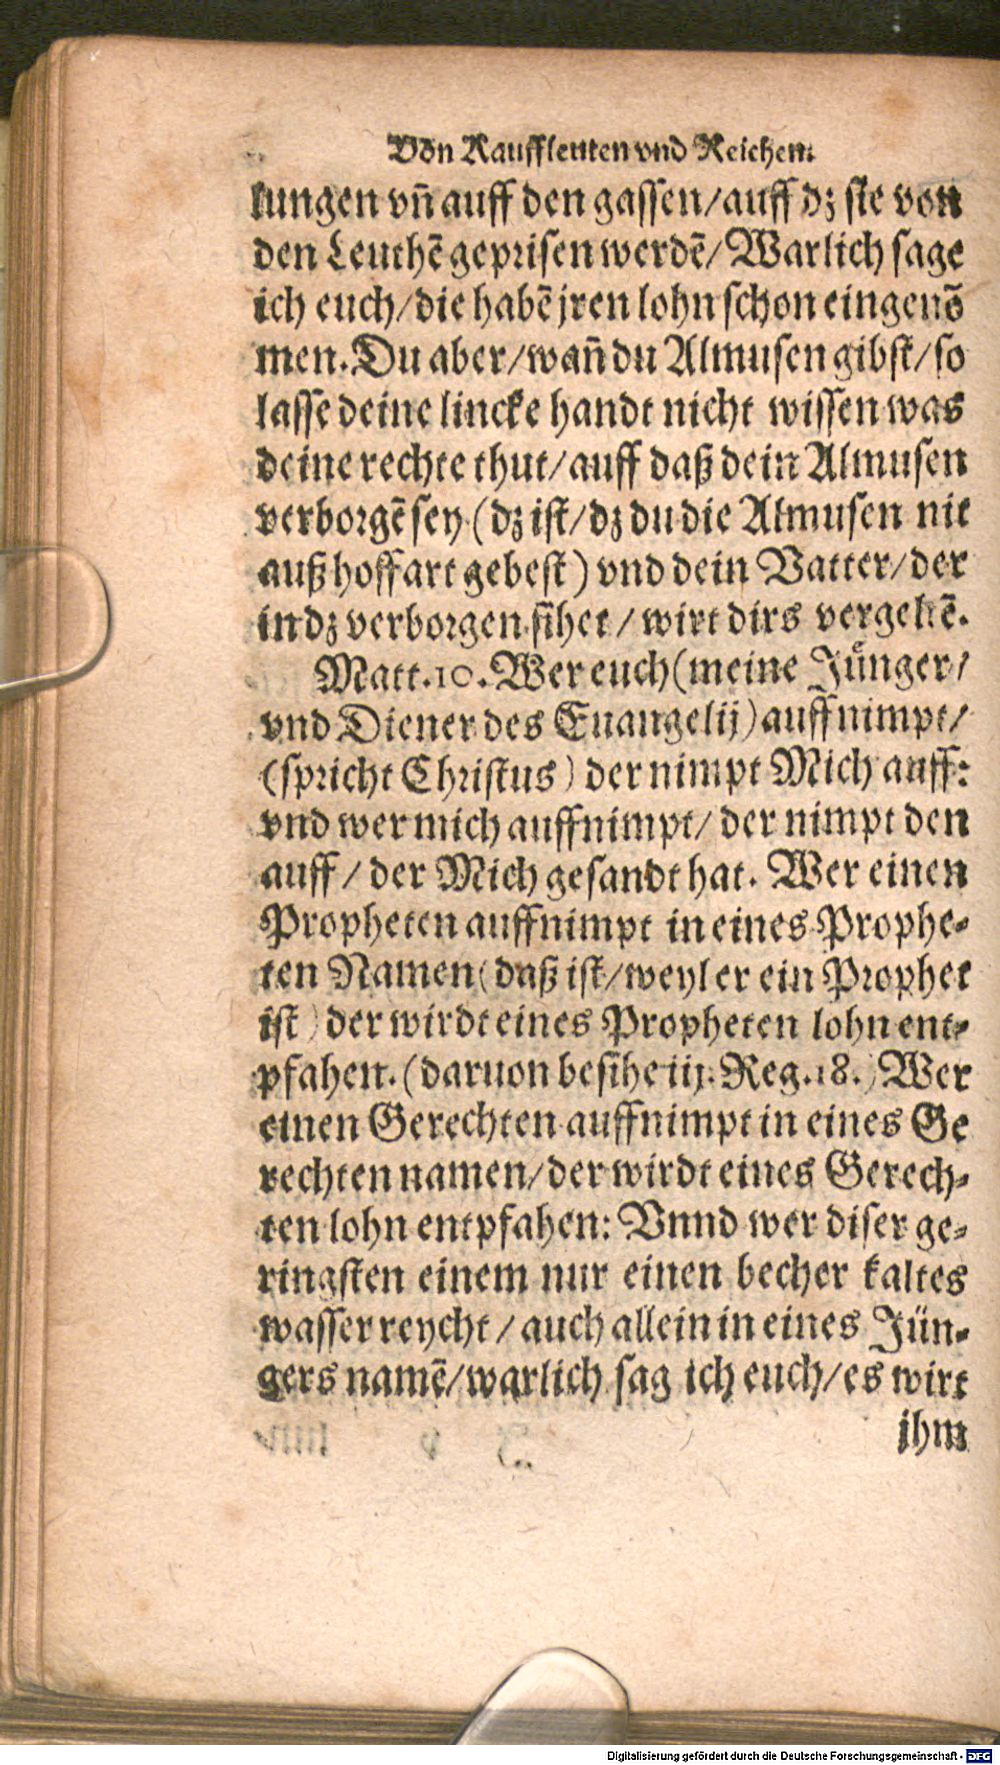 Von Kauffleuten vnd Reichen.
lungen vñ auff den gassen/auff dz sie von
den Leuthē geprisen werdē/ Warlich sage
ich euch/die habē jren lohn schon eingenō
men. Du aber/wañ du Almusen gibst/so
lasse deine lincke handt nicht wissen was
deine rechte thut/auff daß dein Almusen
verborgē sey (dz ist/dz du die Almusen nit
auß hoffart gebest) vnd dein Vatter/der
in dz verborgen sihet/ wirt dirs vergeltē.
Matt.10. Wer euch (meine Jünger/
vnd Diener des Euangelij) auffnimpt/
(spricht Christus) der nimpt Mich auff:
vnd wer mich auffnimpt/ der nimpt den
auff/ der Mich gesandt hat. Wer einen
Propheten auffnimpt in eines Prophe-
ten Namen (daß ist/weyl er ein Prophet
ist) der wirdt eines Propheten lohn ent-
pfahen. (daruon besihe iij. Reg.18.) Wer
einen Gerechten auffnimpt in eines Ge
rechten namen/der wirdt eines Gerech-
ten lohn entpfahen: Vnnd wer diser ge-
ringsten einem nur einen becher kaltes
wasser reycht/ auch allein in eines Jün-
gers namē/warlich sag ich euch/es wirt
ihm
Digitalisierung gefördert durch die Deutsche Forschungsgemeinschaft - DFG